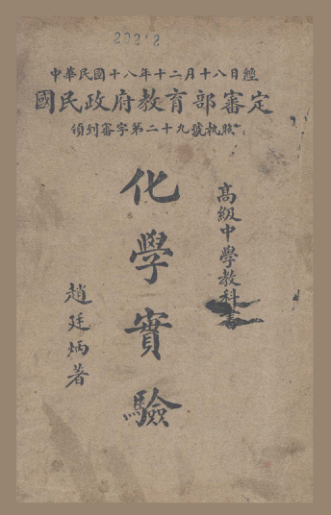 中華民國十八年十二月十八日經
國民政府教育部審定
領到審字第二十九號執照
高級中學教科書
化學實驗
趙廷炳著